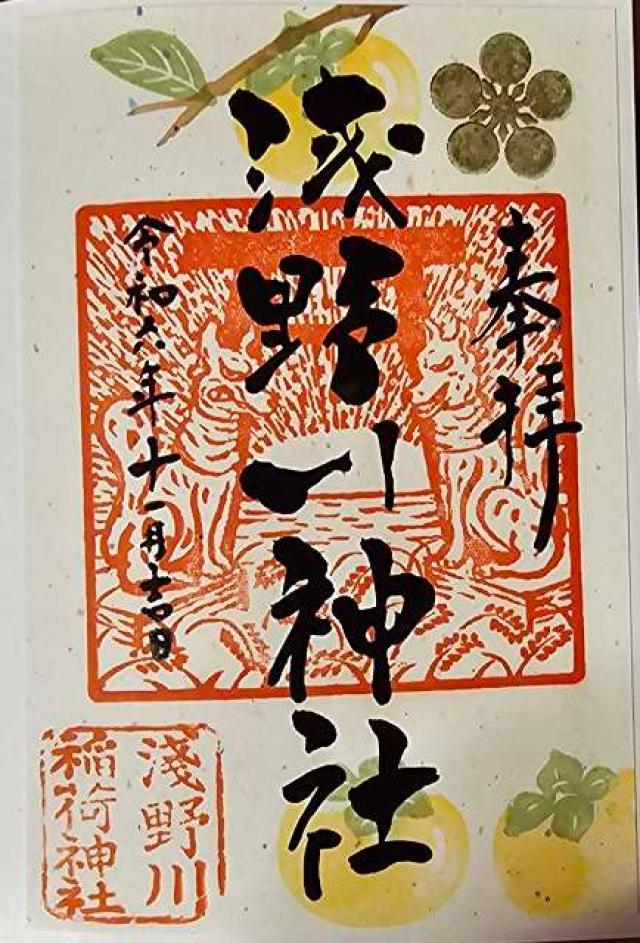 奉拝
浅野川神社
令和六年十一月吉日
淺野川
稲荷神社